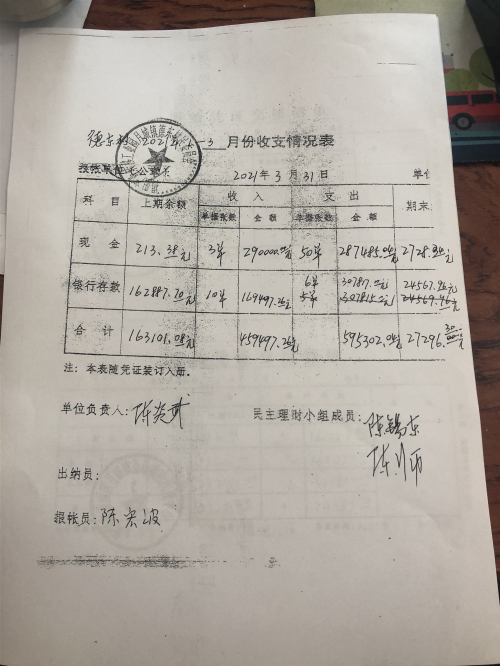 德东村 2021年 1-3 月份收支情况表
报帐单位(公章)
2021年3月31日
单位
科目 上期余额 收入 支出 期末
单据张数 金额 单据张数 金额
现金 213.38元 3单 290000.00元 50单 287485.04元 2728.34元
6单 307817.00元 24567.96元
银行存款 162887.70元 10单 169497.26元 5单 307815.00元 24569.46元
合计 163101.08元 459497.26元 595302.04元 27296.30元
注:本表随凭证装订入册。
单位负责人:陈炎武 民主理财小组成员:陈锡东
出纳员:
报帐员:陈宏波